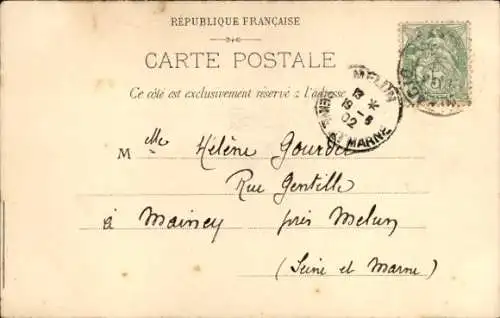 RÉPUBLIQUE FRANÇAISE
CARTE POSTALE
Ce côté est exclusivement réservé à l'adresse
MELUN
13 *
19 - 8
02
SEINE ET MARNE
M lle Hélène Gourdet
Rue Gentille
à Maincy près Melun
(Seine et Marne)